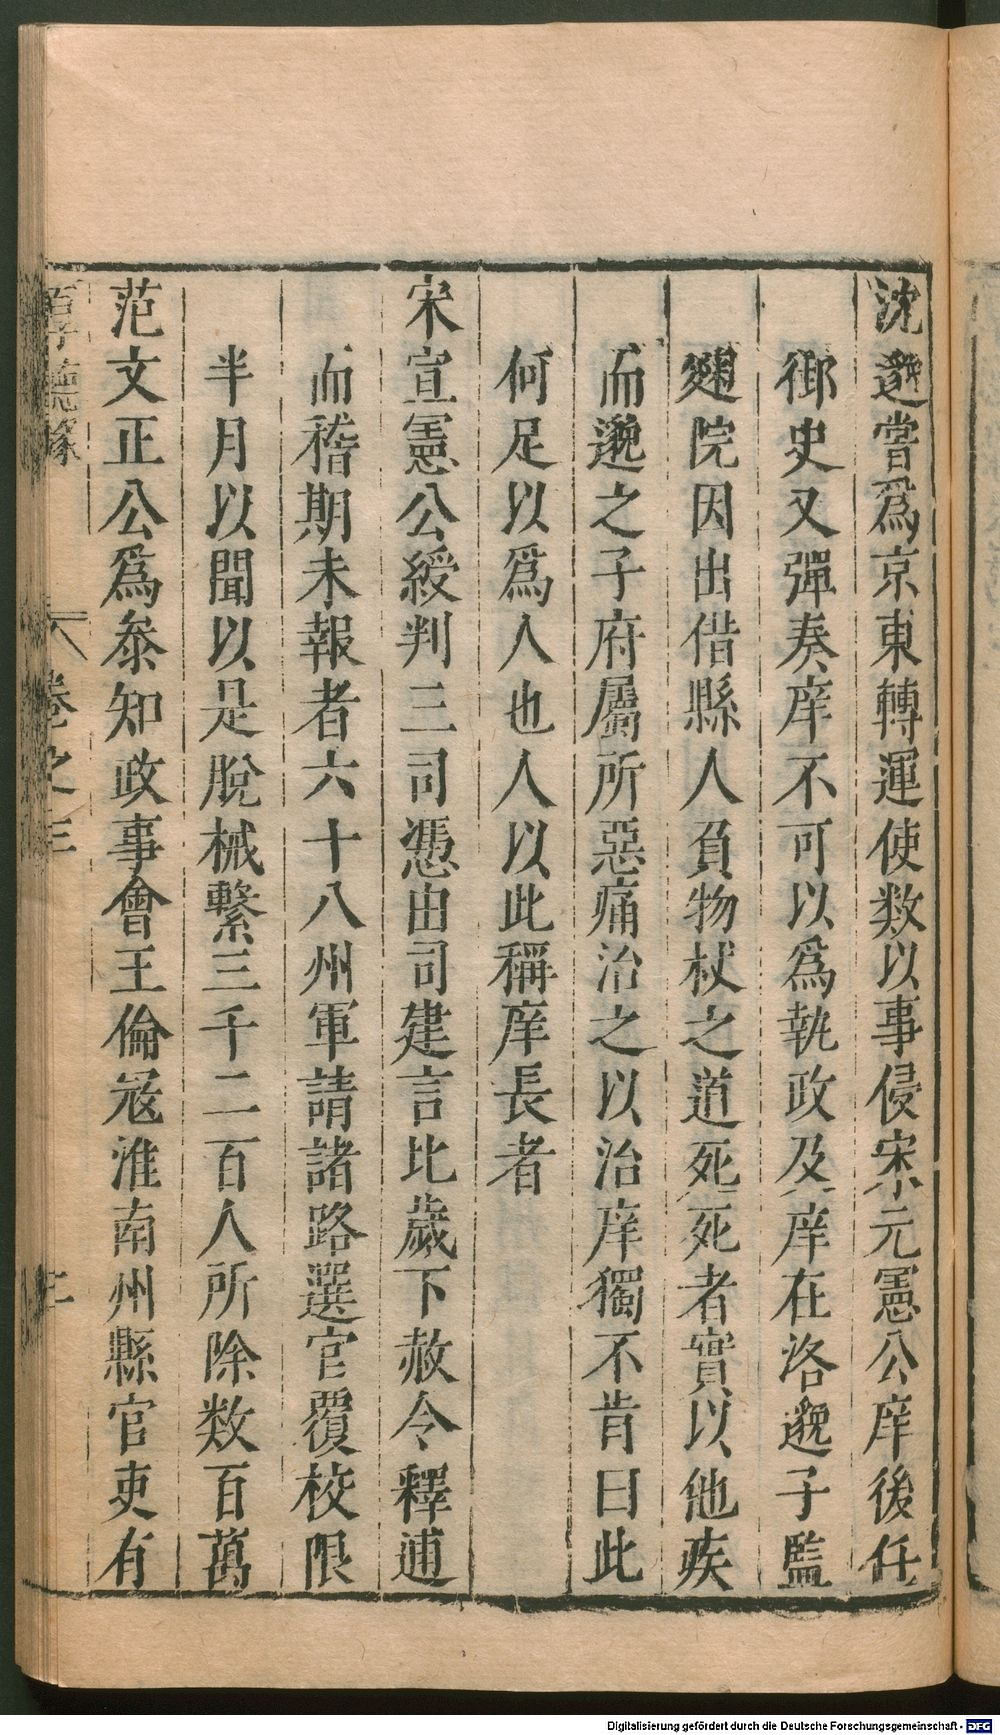 沈邈嘗爲京東轉運使数以事侵宋元憲公庠後任
御史又彈奏庠不可以爲執政及庠在洛邈子監
麯院因出借縣人負物杖之道死死者實以他疾
而邈之子府屬所惡痛治之以治庠獨不肯曰此
何足以爲人也人以此稱庠長者
宋宣憲公綬判三司憑由司建言比歲下赦令釋逋
而稽期未報者六十八州軍請諸路選官覆校限
半月以聞以是脫械繫三千二百人所除数百萬
范文正公爲叅知政事會王倫冦淮南州縣官吏有
卷之三
Digitalisierung gefördert durch die Deutsche Forschungsgemeinschaft - DFG